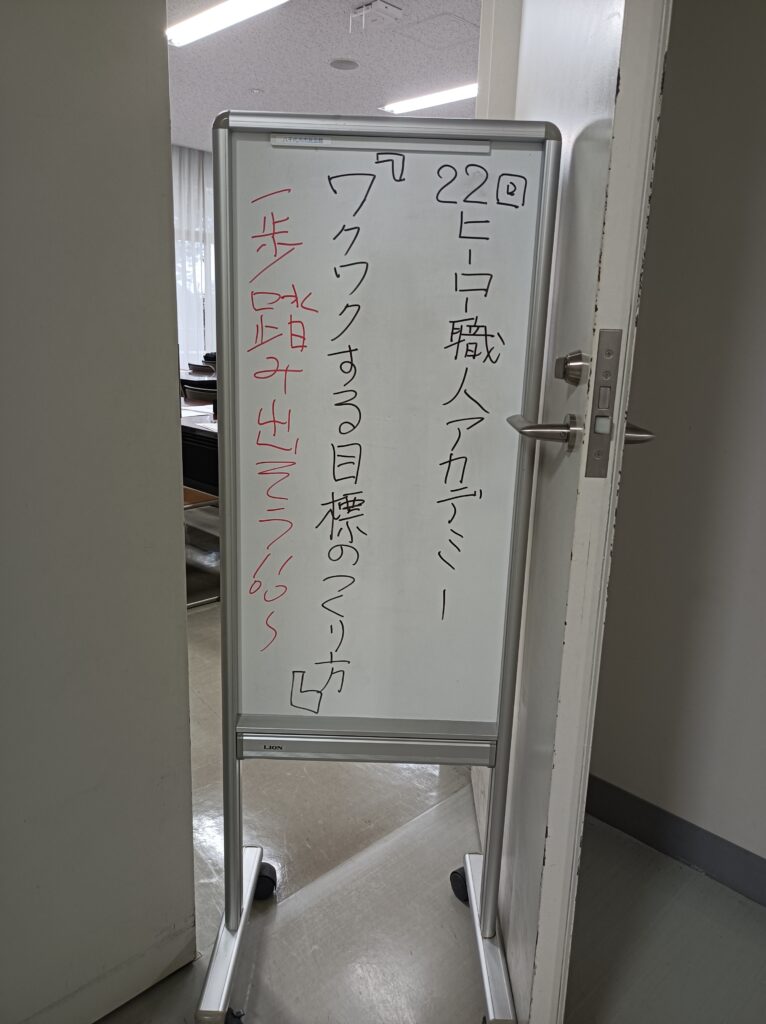 22回ヒーロー職人アカデミー
『ワクワクする目標のつくり方』
一歩踏み出そう!!〜
LION